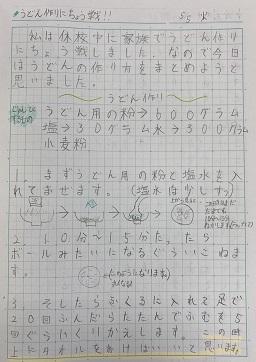 うどん作りにちょう戦!!
5/5 火
私は休校中に家族でうどん作り
にちょう戦しました。なので今日
はうどんの作り方をまとめようと
思いました。
うどん作り
うどん用の粉→600グラム
塩→30グラム水→300グラム
小麦粉
1.まずうどん用の粉と塩水を入
れてまぜます。(塩水は少しずつ)
2.10分~15分たったら
ボールみたいになるぐらいこねま
す。
3.そしたらふくろに入れて足で
20回ふんだらたたんでふむを5
回ぐらいくりかえします。この時
上にタオルをおけばいいと思います。